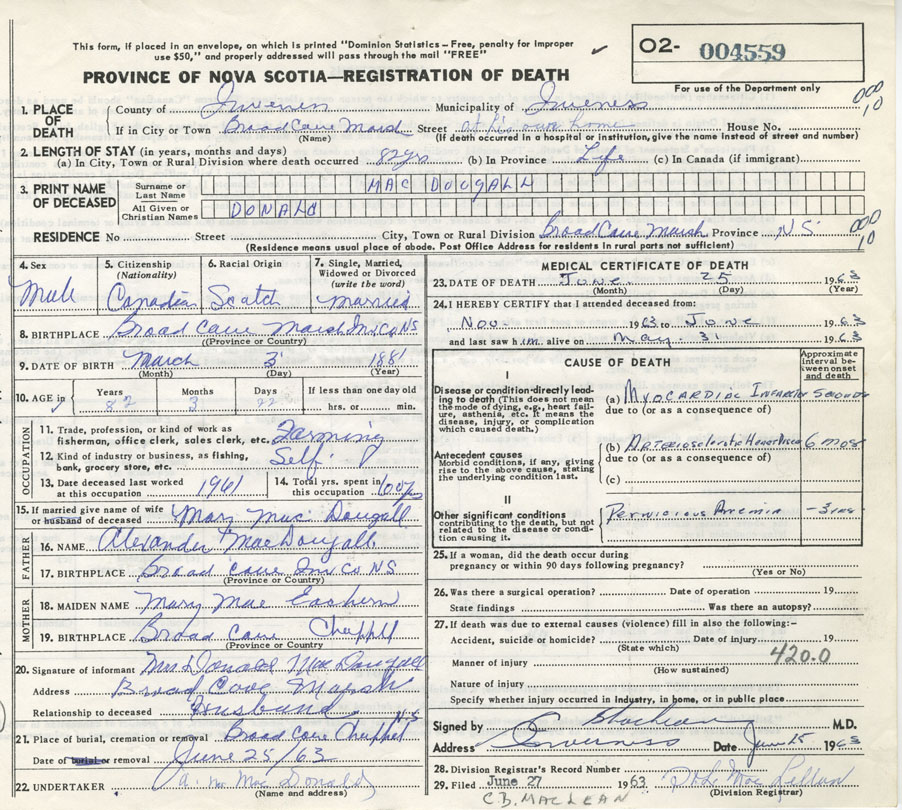 This form, if placed in an envelope, on which is printed "Dominion Statistics – Free, penalty for improper
use $50," and properly addressed will pass through the mail "FREE"
O2- 004559
PROVINCE OF NOVA SCOTIA—REGISTRATION OF DEATH
For use of the Department only
000
10
1. PLACE OF DEATH
County of Inverness Municipality of Inverness
If in City or Town Broad Cove Marsh Street at his own home House No.
(Name) (If death occurred in a hospital or institution, give the name instead of street and number)
2. LENGTH OF STAY (in years, months and days)
(a) In City, Town or Rural Division where death occurred 82yrs (b) In Province Life (c) In Canada (if immigrant)
3. PRINT NAME OF DECEASED
Surname or Last Name MAC DOUGALL
All Given or Christian Names DONALD
000
10
RESIDENCE No Street City, Town or Rural Division Broad Cove Marsh Province N S
(Residence means usual place of abode. Post Office Address for residents in rural parts not sufficient)
4. Sex
Male
5. Citizenship
(Nationality)
Canadian
6. Racial Origin
Scotch
7. Single, Married, Widowed or Divorced
(write the word)
Married
8. BIRTHPLACE Broad Cove Marsh Inv Co NS
(Province or Country)
9. DATE OF BIRTH March 3 1881
(Month) (Day) (Year)
10. AGE in
Years 82
Months 3
Days 22
If less than one day old
hrs. or min.
OCCUPATION
11. Trade, profession, or kind of work as
fisherman, office clerk, sales clerk, etc. Farming
12. Kind of industry or business, as fishing,
bank, grocery store, etc. Self
13. Date deceased last worked
at this occupation 1961
14. Total yrs. spent in
this occupation 60 yrs
15. If married give name of wife
or husband of deceased Mary Mac Dougall
FATHER
16. NAME Alexander MacDougall
17. BIRTHPLACE Broad Cove Inv Co NS
(Province or Country)
MOTHER
18. MAIDEN NAME Mary Mac Eachern
19. BIRTHPLACE Broad Cove Chappel
(Province or Country)
20. Signature of informant Mrs Donald MacDougall
Address Broad Cove Marsh
Relationship to deceased Husband N.S
21. Place of burial, cremation or removal Broad Cove Chappel
Date of burial or removal June 25/63
22. UNDERTAKER a. m Mac Donald
(Name and address)
MEDICAL CERTIFICATE OF DEATH
23. DATE OF DEATH June 25 1963
(Month) (Day) (Year)
24. I HEREBY CERTIFY that I attended deceased from:
Nov 1963 to June 1963
and last saw him alive on May. 31 1963
CAUSE OF DEATH
Approximate interval between onset and death
I
Disease or condition directly leading to death (This does not mean the mode of dying, e.g., heart failure, asthenia, etc. It means the disease, injury, or complication which caused death.)
(a) Myocardial Infarction
due to (or as a consequence of)
Antecedent causes
Morbid conditions, if any, giving rise to the above cause, stating the underlying condition last.
(b) Arteriosclerotic Heart Disease 6 mos
due to (or as a consequence of)
(c)
II
Other significant conditions
contributing to the death, but not related to the disease or condition causing it.
Pernicious Anemia
25. If a woman, did the death occur during
pregnancy or within 90 days following pregnancy?
(Yes or No)
26. Was there a surgical operation? Date of operation 19
State findings Was there an autopsy?
27. If death was due to external causes (violence) fill in also the following:–
Accident, suicide or homicide? Date of injury 19
(State which)
420.0
Manner of injury
(How sustained)
Nature of injury
Specify whether injury occurred in industry, in home, or in public place
Signed by M.D.
Address Inverness Date 1963
28. Division Registrar's Record Number
29. Filed June 27 1963
(Division Registrar)
C.B. MACLEAN